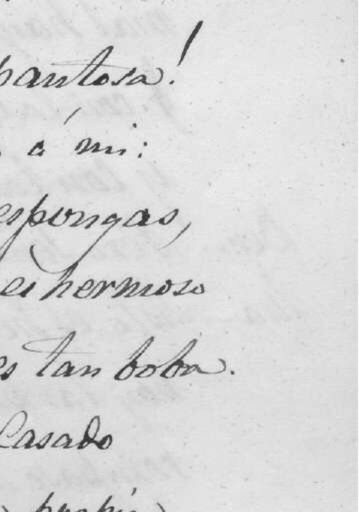 pantosa!
á mi:
espongas,
ei hermoso
es tan boba.
Casado
propio